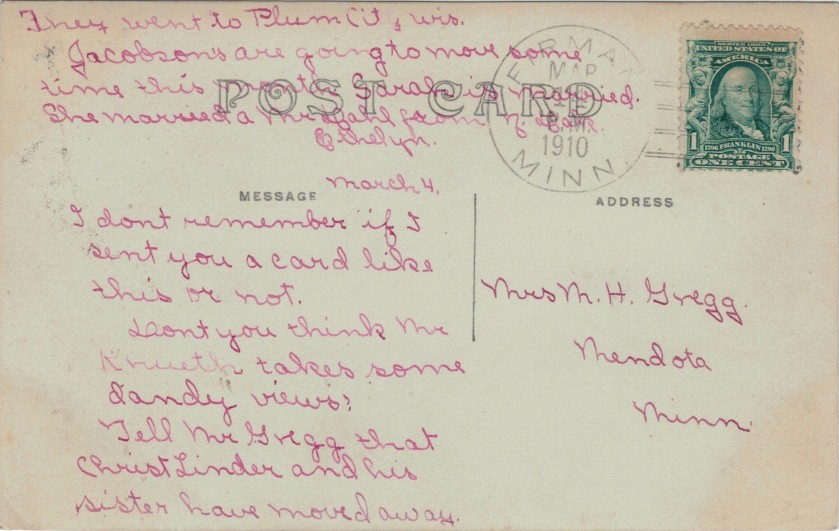 They went to Plum City, Wis.
Jacobsons are going to move some
time this month. Sarah is married.
She married a Mr from N. Dak.
Ethelyn.
POST CARD
MAR
1910
MINN
SERIES 1902
UNITED STATES OF
AMERICA
1 1
1706 FRANKLIN 1790
POSTAGE
ONE CENT
March 4,
MESSAGE
I dont remember if I
sent you a card like
this or not.
Dont you think Mr
Krueth takes some
dandy views?
Tell Mr Gregg that
Christ Linder and his
sister have moved away.
ADDRESS
Mrs M. H. Gregg.
Mendota
Minn.